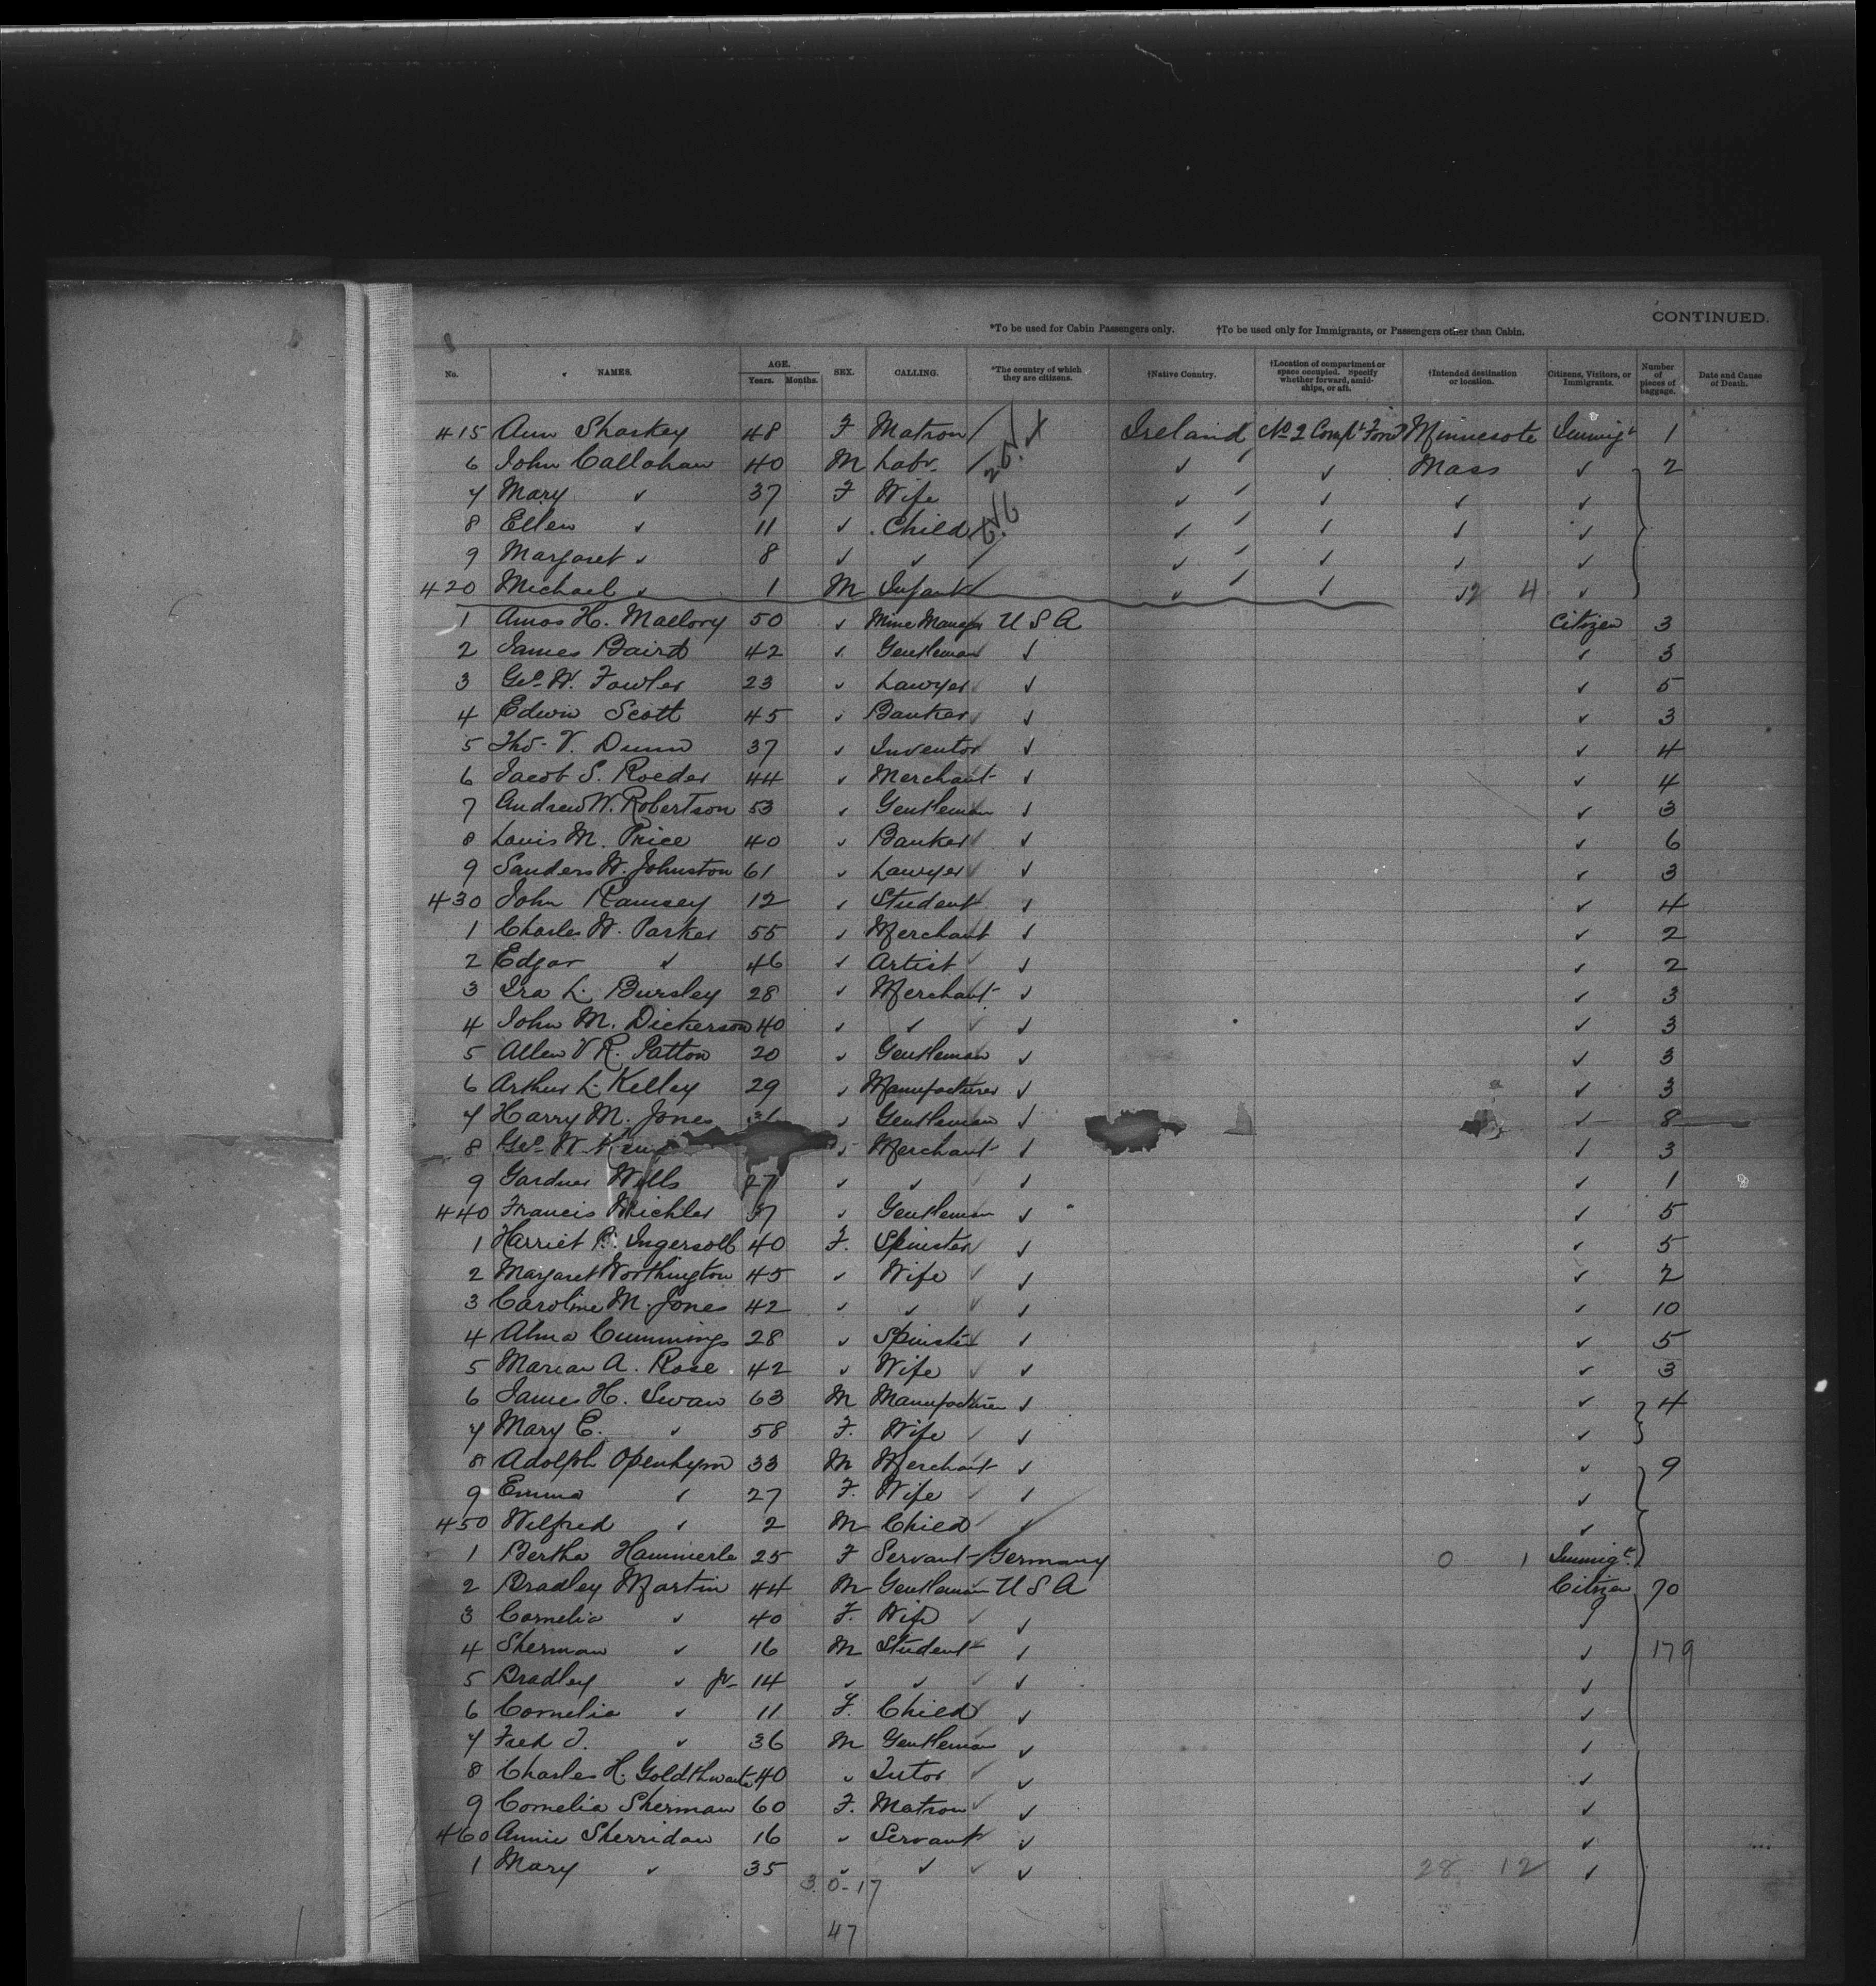 CONTINUED.
*To be used for Cabin Passengers only. †To be used only for Immigrants, or Passengers other than Cabin.
No. NAMES. AGE. Years. Months. SEX. CALLING. *The country of which they are citizens. †Native Country. †Location of compartment or space occupied. Specify whether forward, amidships, or aft. †Intended destination or location. Citizens, Visitors, or Immigrants. Number of pieces of baggage. Date and Cause of Death.
415 Ann Sharkey 48 F Matron Ireland No 2 Compt Ford Minnesota Immigt 1
6 John Callahan 40 M Labr. ✓ ✓ Mass ✓ 2
7 Mary ✓ 37 F Wife ✓ ✓ ✓ ✓
8 Ellen ✓ 11 ✓ Child ✓ ✓ ✓ ✓
9 Margaret ✓ 8 ✓ ✓ ✓ ✓ ✓ ✓
420 Michael ✓ 1 M Infant ✓ ✓ ✓ 2 4 ✓
1 Amos H. Mallory 50 ✓ Mine Manager U S A Citizen 3
2 James Baird 42 ✓ Gentleman ✓ ✓ 3
3 Geo. W. Fowler 23 ✓ Lawyer ✓ ✓ 5
4 Edwin Scott 45 ✓ Banker ✓ ✓ 3
5 Tho- V. Dunn 37 ✓ Inventor ✓ ✓ 4
6 Jacob S. Roeder 44 ✓ Merchant ✓ ✓ 4
7 Andrew W. Robertson 53 ✓ Gentleman ✓ ✓ 3
8 Louis M. Price 40 ✓ Banker ✓ ✓ 6
9 Sanders W. Johnston 61 ✓ Lawyer ✓ ✓ 3
430 John Ramsey 12 ✓ Student ✓ ✓ 4
1 Charles W. Parker 55 ✓ Merchant ✓ ✓ 2
2 Edgar ✓ 46 ✓ Artist ✓ ✓ 2
3 Ira L. Bursley 28 ✓ Merchant ✓ ✓ 3
4 John M. Dickerson 40 ✓ ✓ ✓ ✓ 3
5 Allen V R. Patton 20 ✓ Gentleman ✓ ✓ 3
6 Arthur L. Kelley 29 ✓ Manufacturer ✓ ✓ 3
7 Harry M. Jones ✓ Gentleman ✓ ✓ 8
8 Geo. W. ✓ Merchant ✓ ✓ 3
9 Gardner Wells 27 ✓ ✓ ✓ ✓ 1
440 Francis Michler 37 ✓ Gentleman ✓ ✓ 5
1 Harriet Ingersoll 40 F. Spinster ✓ ✓ 5
2 Margaret Worthington 45 ✓ Wife ✓ ✓ 2
3 Caroline M. Jones 42 ✓ ✓ ✓ ✓ 10
4 Alma Cummings 28 ✓ Spinster ✓ ✓ 5
5 Marian A. Rose 42 ✓ Wife ✓ ✓ 3
6 James H. Swan 63 M Manufacturer ✓ ✓ 4
7 Mary E. ✓ 58 F. Wife ✓ ✓
8 Adolph Openhym 33 M Merchant ✓ ✓ 9
9 Emma ✓ 27 F. Wife ✓ ✓
450 Wilfred ✓ 2 M Child ✓ ✓
1 Bertha Hammerle 25 F Servant Germany 0 1 Immigt.
2 Bradley Martin 44 M Gentleman U S A Citizen 70
3 Cornelia ✓ 40 F. Wife ✓ ✓
4 Sherman ✓ 16 M Student ✓ ✓ 179
5 Bradley ✓ Jr 14 ✓ ✓ ✓ ✓
6 Cornelia ✓ 11 F. Child ✓ ✓
7 Fred T. ✓ 36 M Gentleman ✓ ✓
8 Charles H. Goldthwaite 40 ✓ Tutor ✓ ✓
9 Cornelia Sherman 60 F. Matron ✓ ✓
460 Annie Sherridan 16 ✓ Servant ✓ ✓
1 Mary ✓ 35 ✓ ✓ ✓ 28 12 ✓
30-17
47